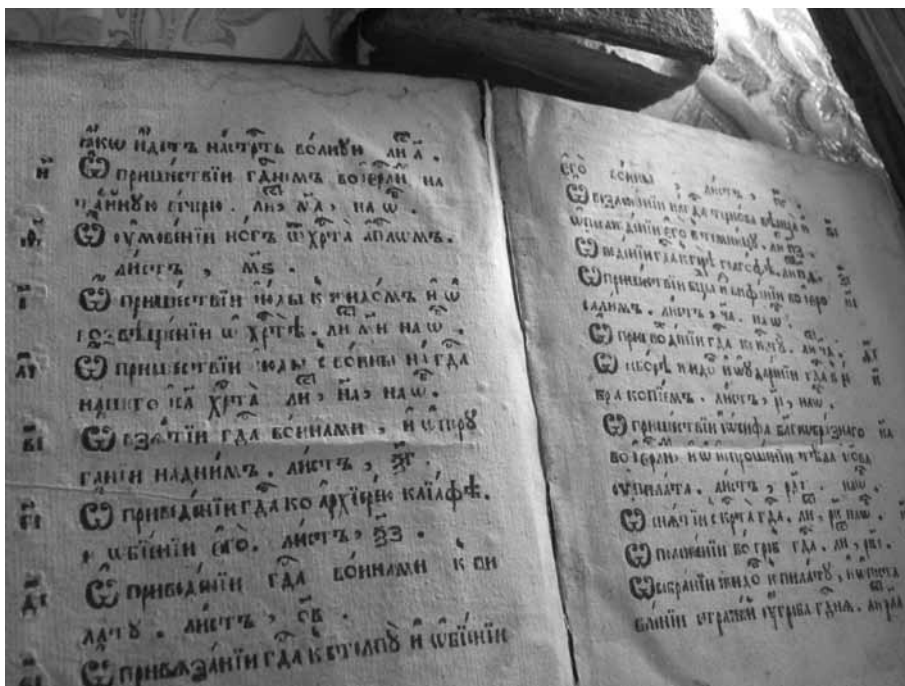 ꙗкѡ и҆дє́тъ на́стрⷭ҇ть во́лнꙋю ли А҃.
и҃ Ѡ҆ прише́ствїи гдⷭ҇нємъ во і҆ерⷭ҇ли́мъ на
та́йнꙋю ве́черю. лиⷭ҇, м҃а, на ѡ҆б.
ѳ҃ Ѡ҆ ᲂу҆мове́нїи но́гъ ѿ хрⷭ҇та̀ а҆пⷭ҇лѡмъ.
ли́стъ, м҃ѕ.
і҃ Ѡ҆ прише́ствїи і҆ю́ды к жидо́мъ и҆ ѡ҆
возвѣще́нїи ѡ҆ хрⷭ҇тѣ̀. ли м҃и на ѡ҆б.
а҃і Ѡ҆ прише́ствїи і҆ю́ды с во́ины на́ гдⷭ҇а
на́шего і҆са хрⷭ҇та̀ лиⷭ҇, н҃а, на ѡ҆б.
в҃і Ѡ҆ взѧ́тїи гдⷭ҇а во́инами, и҆ ѡ҆ порꙋ
га́нїи над ни́мъ. ли́стъ, ѯ҃г.
г҃і Ѡ҆ приведе́нїи гдⷭ҇а ко а҆рхїере́ю каїа́фѣ.
и҆ ѡ҆ бїе́нїи є҆гѡ̀. ли́стъ, ѯ҃з.
д҃і Ѡ҆ приведе́нїи гдⷭ҇а во́инами к пи
ла́тꙋ. ли́стъ, о҃в.
є҃і Ѡ҆ привѧза́нїи гдⷭ҇а к столпꙋ̀ и҆ ѡ҆ бїе́нїи
є҆гѡ̀ во́ины, ли́стъ,
Ѡ҆ возложе́нїи на́ гдⷭ҇а те́рнова вѣнца̀ и҆
є҆гѡ̀ в темни́цꙋ. ли
Ѡ҆ веде́нїи гдⷭ҇а к горѣ̀ голго́фѣ. ли п҃д.
Ѡ҆ прише́ствїи бц҃ы и҆ во і҆еро
сали́мъ. ли́стъ, ч҃а. на ѡ҆б.
Ѡ҆ приведе́нїи гдⷭ҇а ко крⷭ҇тꙋ̀. ли ч҃а.
и҆ ѡ҆ ᲂу҆даре́нїи гдⷭ҇а в ре
бра копїе́мъ. ли́стъ, р҃і, на ѡ҆б.
Ѡ҆ прише́ствїи і҆ѡ́сифа благоѡбра́знаго
во і҆ерⷭ҇ли́мъ, и҆ ѡ҆ испроше́нїи тѣ́ла і҆сⷭ҇ова
ᲂу҆ пила́та. ли́стъ, на ѡ҆б.
Ѡ҆ снѧ́тїи с крⷭ҇та̀ гдⷭ҇а. ли, на ѡ҆б.
Ѡ҆ положе́нїи во́ гробъ гдⷭ҇а. ли,
Ѡ҆ собра́нїи жидо́въ к пила́тꙋ, и҆ ѡ҆ поста
вле́нїи стра́жей ᲂу҆ гро́ба гдⷭ҇нѧ. ли